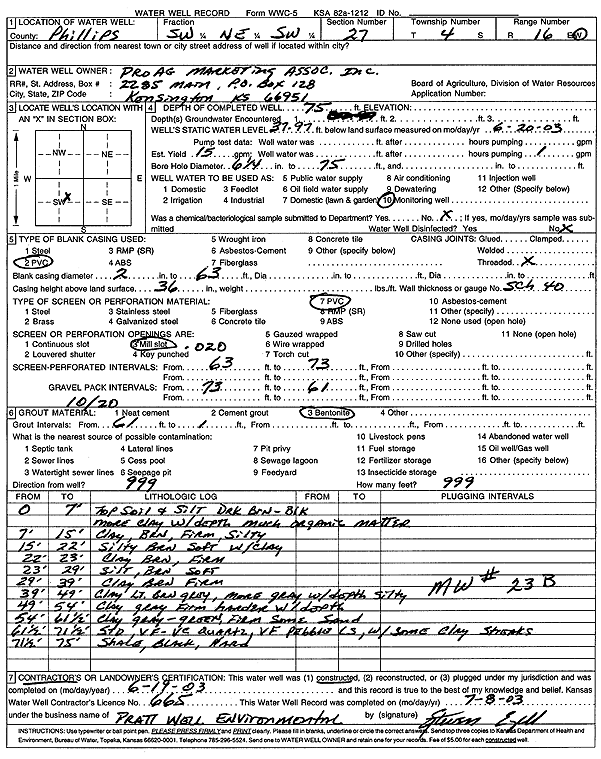 WATER WELL RECORD Form WWC-5 KSA 82a-1212 ID No.
1 LOCATION OF WATER WELL: Fraction Section Number Township Number Range Number
County: Phillips SW ¼ NE ¼ SW ¼ 27 T 4 S R 16 E/W
Distance and direction from nearest town or city street address of well if located within city?
2 WATER WELL OWNER: PRO AG MARKETING ASSOC. INC.
RR#, St. Address, Box # : 2285 MAIN, P.O. BOX 128 Board of Agriculture, Division of Water Resources
City, State, ZIP Code : Kensington KS 66951 Application Number:
3 LOCATE WELL'S LOCATION WITH AN "X" IN SECTION BOX:
N
NW NE
W E
SW X SE
S
1 Mile
4 DEPTH OF COMPLETED WELL 75 ft. ELEVATION:
Depth(s) Groundwater Encountered 1. ft. 2. ft. 3. ft.
WELL'S STATIC WATER LEVEL 37.97 ft. below land surface measured on mo/day/yr 6-20-03
Pump test data: Well water was ft. after hours pumping gpm
Est. Yield 15 gpm: Well water was ft. after hours pumping 1 gpm
Bore Hole Diameter 6 1/4 in. to 75 ft., and in. to ft.
WELL WATER TO BE USED AS: 5 Public water supply 8 Air conditioning 11 Injection well
1 Domestic 3 Feedlot 6 Oil field water supply 9 Dewatering 12 Other (Specify below)
2 Irrigation 4 Industrial 7 Domestic (lawn & garden) 10 Monitoring well
Was a chemical/bacteriological sample submitted to Department? Yes No X ; If yes, mo/day/yrs sample was submitted
Water Well Disinfected? Yes No X
5 TYPE OF BLANK CASING USED: 5 Wrought iron 8 Concrete tile CASING JOINTS: Glued Clamped
1 Steel 3 RMP (SR) 6 Asbestos-Cement 9 Other (specify below) Welded
2 PVC 4 ABS 7 Fiberglass Threaded X
Blank casing diameter 2 in. to 63 ft., Dia in. to ft., Dia in. to ft.
Casing height above land surface 36 in., weight lbs./ft. Wall thickness or gauge No. Sch 40
TYPE OF SCREEN OR PERFORATION MATERIAL: 7 PVC 10 Asbestos-cement
1 Steel 3 Stainless steel 5 Fiberglass 8 RMP (SR) 11 Other (specify)
2 Brass 4 Galvanized steel 6 Concrete tile 9 ABS 12 None used (open hole)
SCREEN OR PERFORATION OPENINGS ARE: 5 Gauzed wrapped 8 Saw cut 11 None (open hole)
1 Continuous slot 3 Mill slot .020 6 Wire wrapped 9 Drilled holes
2 Louvered shutter 4 Key punched 7 Torch cut 10 Other (specify) ft.
SCREEN-PERFORATED INTERVALS: From 63 ft. to 73 ft., From ft. to ft.
From ft. to ft., From ft. to ft.
GRAVEL PACK INTERVALS: From 73 ft. to 61 ft., From ft. to ft.
10/20 From ft. to ft., From ft. to ft.
6 GROUT MATERIAL: 1 Neat cement 2 Cement grout 3 Bentonite 4 Other
Grout Intervals: From 61 ft. to 1 ft., From ft. to ft., From ft. to ft.
What is the nearest source of possible contamination: 10 Livestock pens 14 Abandoned water well
1 Septic tank 4 Lateral lines 7 Pit privy 11 Fuel storage 15 Oil well/Gas well
2 Sewer lines 5 Cess pool 8 Sewage lagoon 12 Fertilizer storage 16 Other (specify below)
3 Watertight sewer lines 6 Seepage pit 9 Feedyard 13 Insecticide storage
Direction from well? 999 How many feet? 999
FROM TO LITHOLOGIC LOG FROM TO PLUGGING INTERVALS
0 7' Top Soil & Silt DRK BRN-BLK
more clay w/depth much organic matter
7' 15' Clay, BRN, Firm, Silty
15' 22' Silty BRN Soft w/clay
22' 23' Clay BRN, Firm
23' 29' Silt, BRN Soft
29' 39' Clay BRN Firm
39' 49' Clay Lt. BRN gray, more gray w/depth silty
49' 54' Clay gray Firm harder w/depth
54' 61½' Clay gray-green, Firm Some Sand
61½' 71½' STD VF-VC Quartz, VF Pebble LS, w/ some clay streaks
71½' 75' Shale, Black, Hard
MW # 23B
7 CONTRACTOR'S OR LANDOWNER'S CERTIFICATION: This water well was (1) constructed, (2) reconstructed, or (3) plugged under my jurisdiction and was
completed on (mo/day/year) 6-19-03 and this record is true to the best of my knowledge and belief. Kansas
Water Well Contractor's Licence No. 665 This Water Well Record was completed on (mo/day/yr) 7-8-03
under the business name of PRATT WELL ENVIRONMENTAL by (signature)
INSTRUCTIONS: Use typewriter or ball point pen. PLEASE PRESS FIRMLY and PRINT clearly. Please fill in blanks, underline or circle the correct answers. Send top three copies to Kansas Department of Health and
Environment, Bureau of Water, Topeka, Kansas 66620-0001. Telephone 785-296-5524. Send one to WATER WELL OWNER and retain one for your records. Fee of $5.00 for each constructed well.